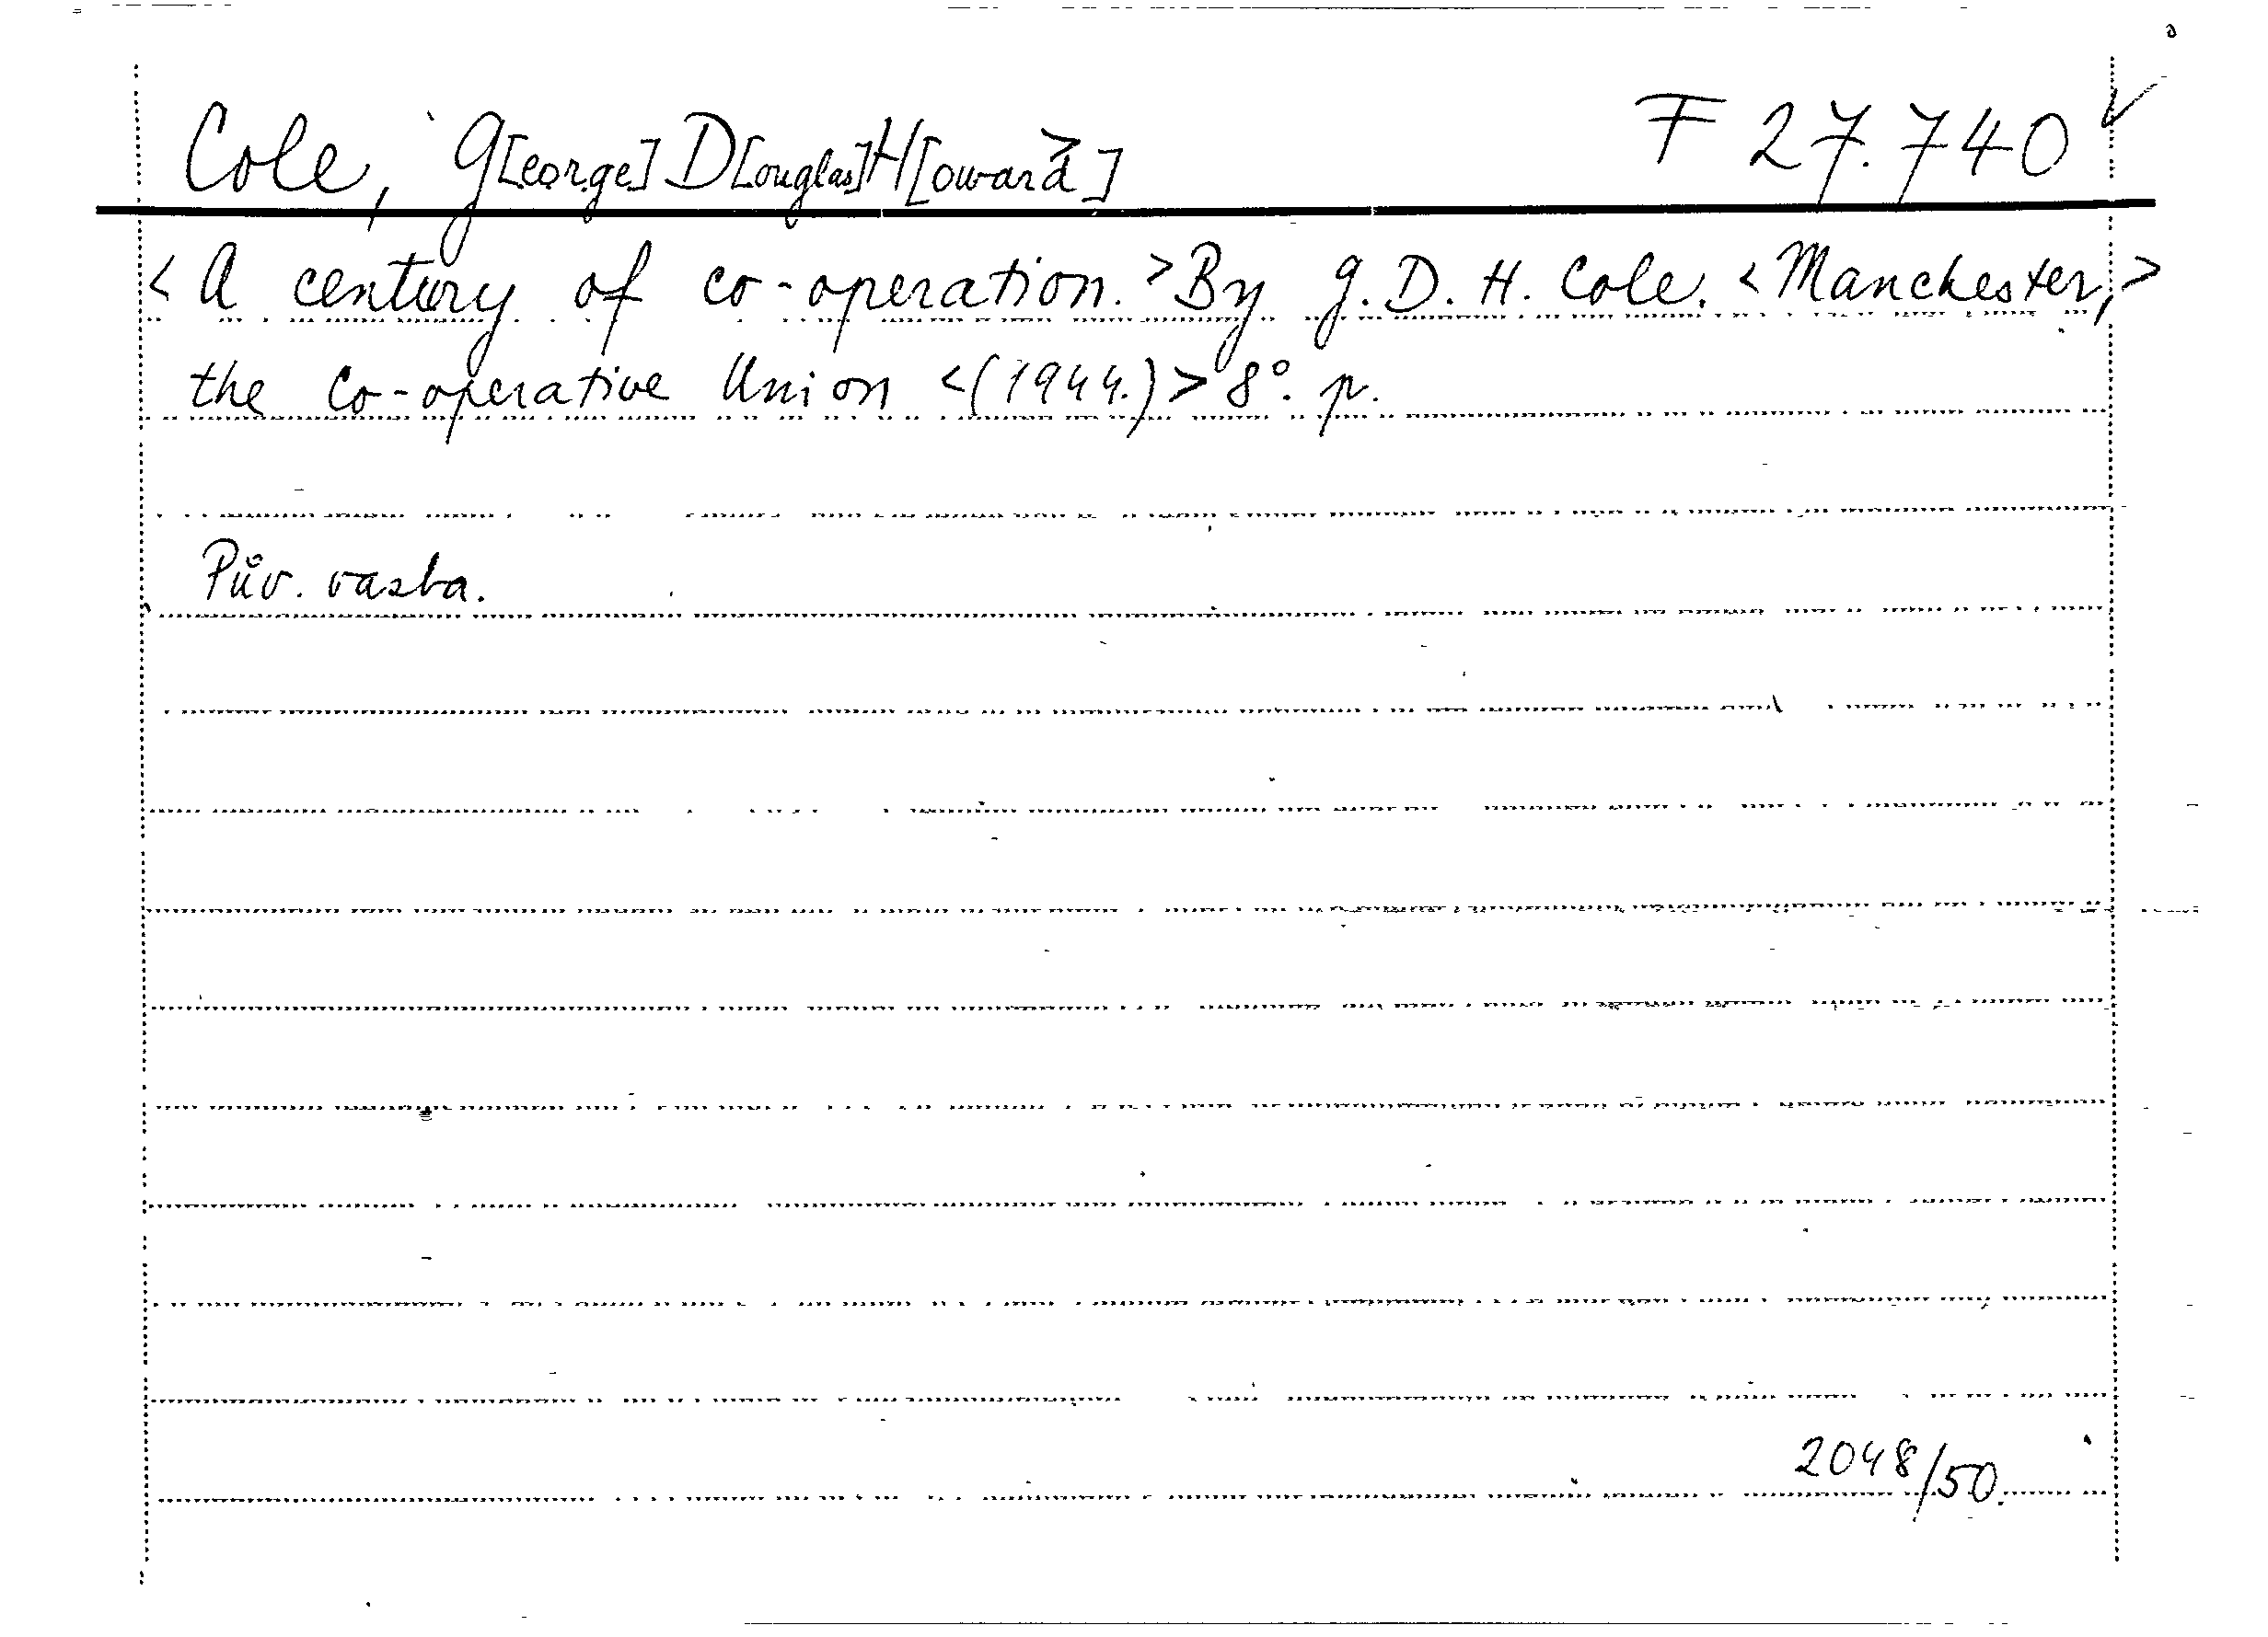 Cole, G[eorge] D[ouglas] H[oward] F 27.740
<A century of co-operation.> By G. D. H. Cole. <Manchester,>
the Co-operative Union <(1944.)> 8°. p.
Pův. vazba.
2048/50.